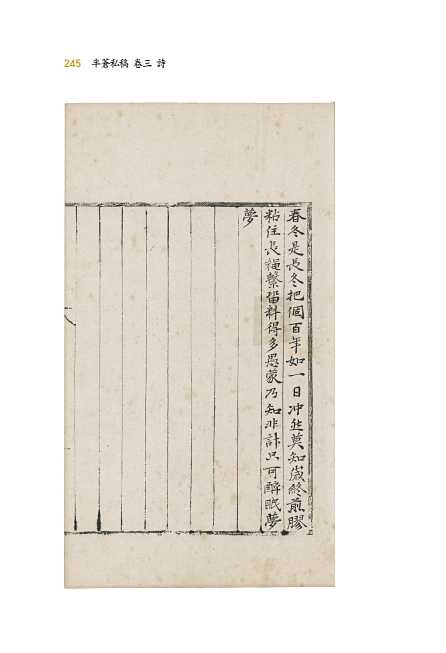 245 半蒼私稿 卷三 詩
春冬是長冬把個百年如一日冲悲莫知歲終煎膠
粘住長繩繫留料得多愚蒙乃知非計只可醉眠夢
夢